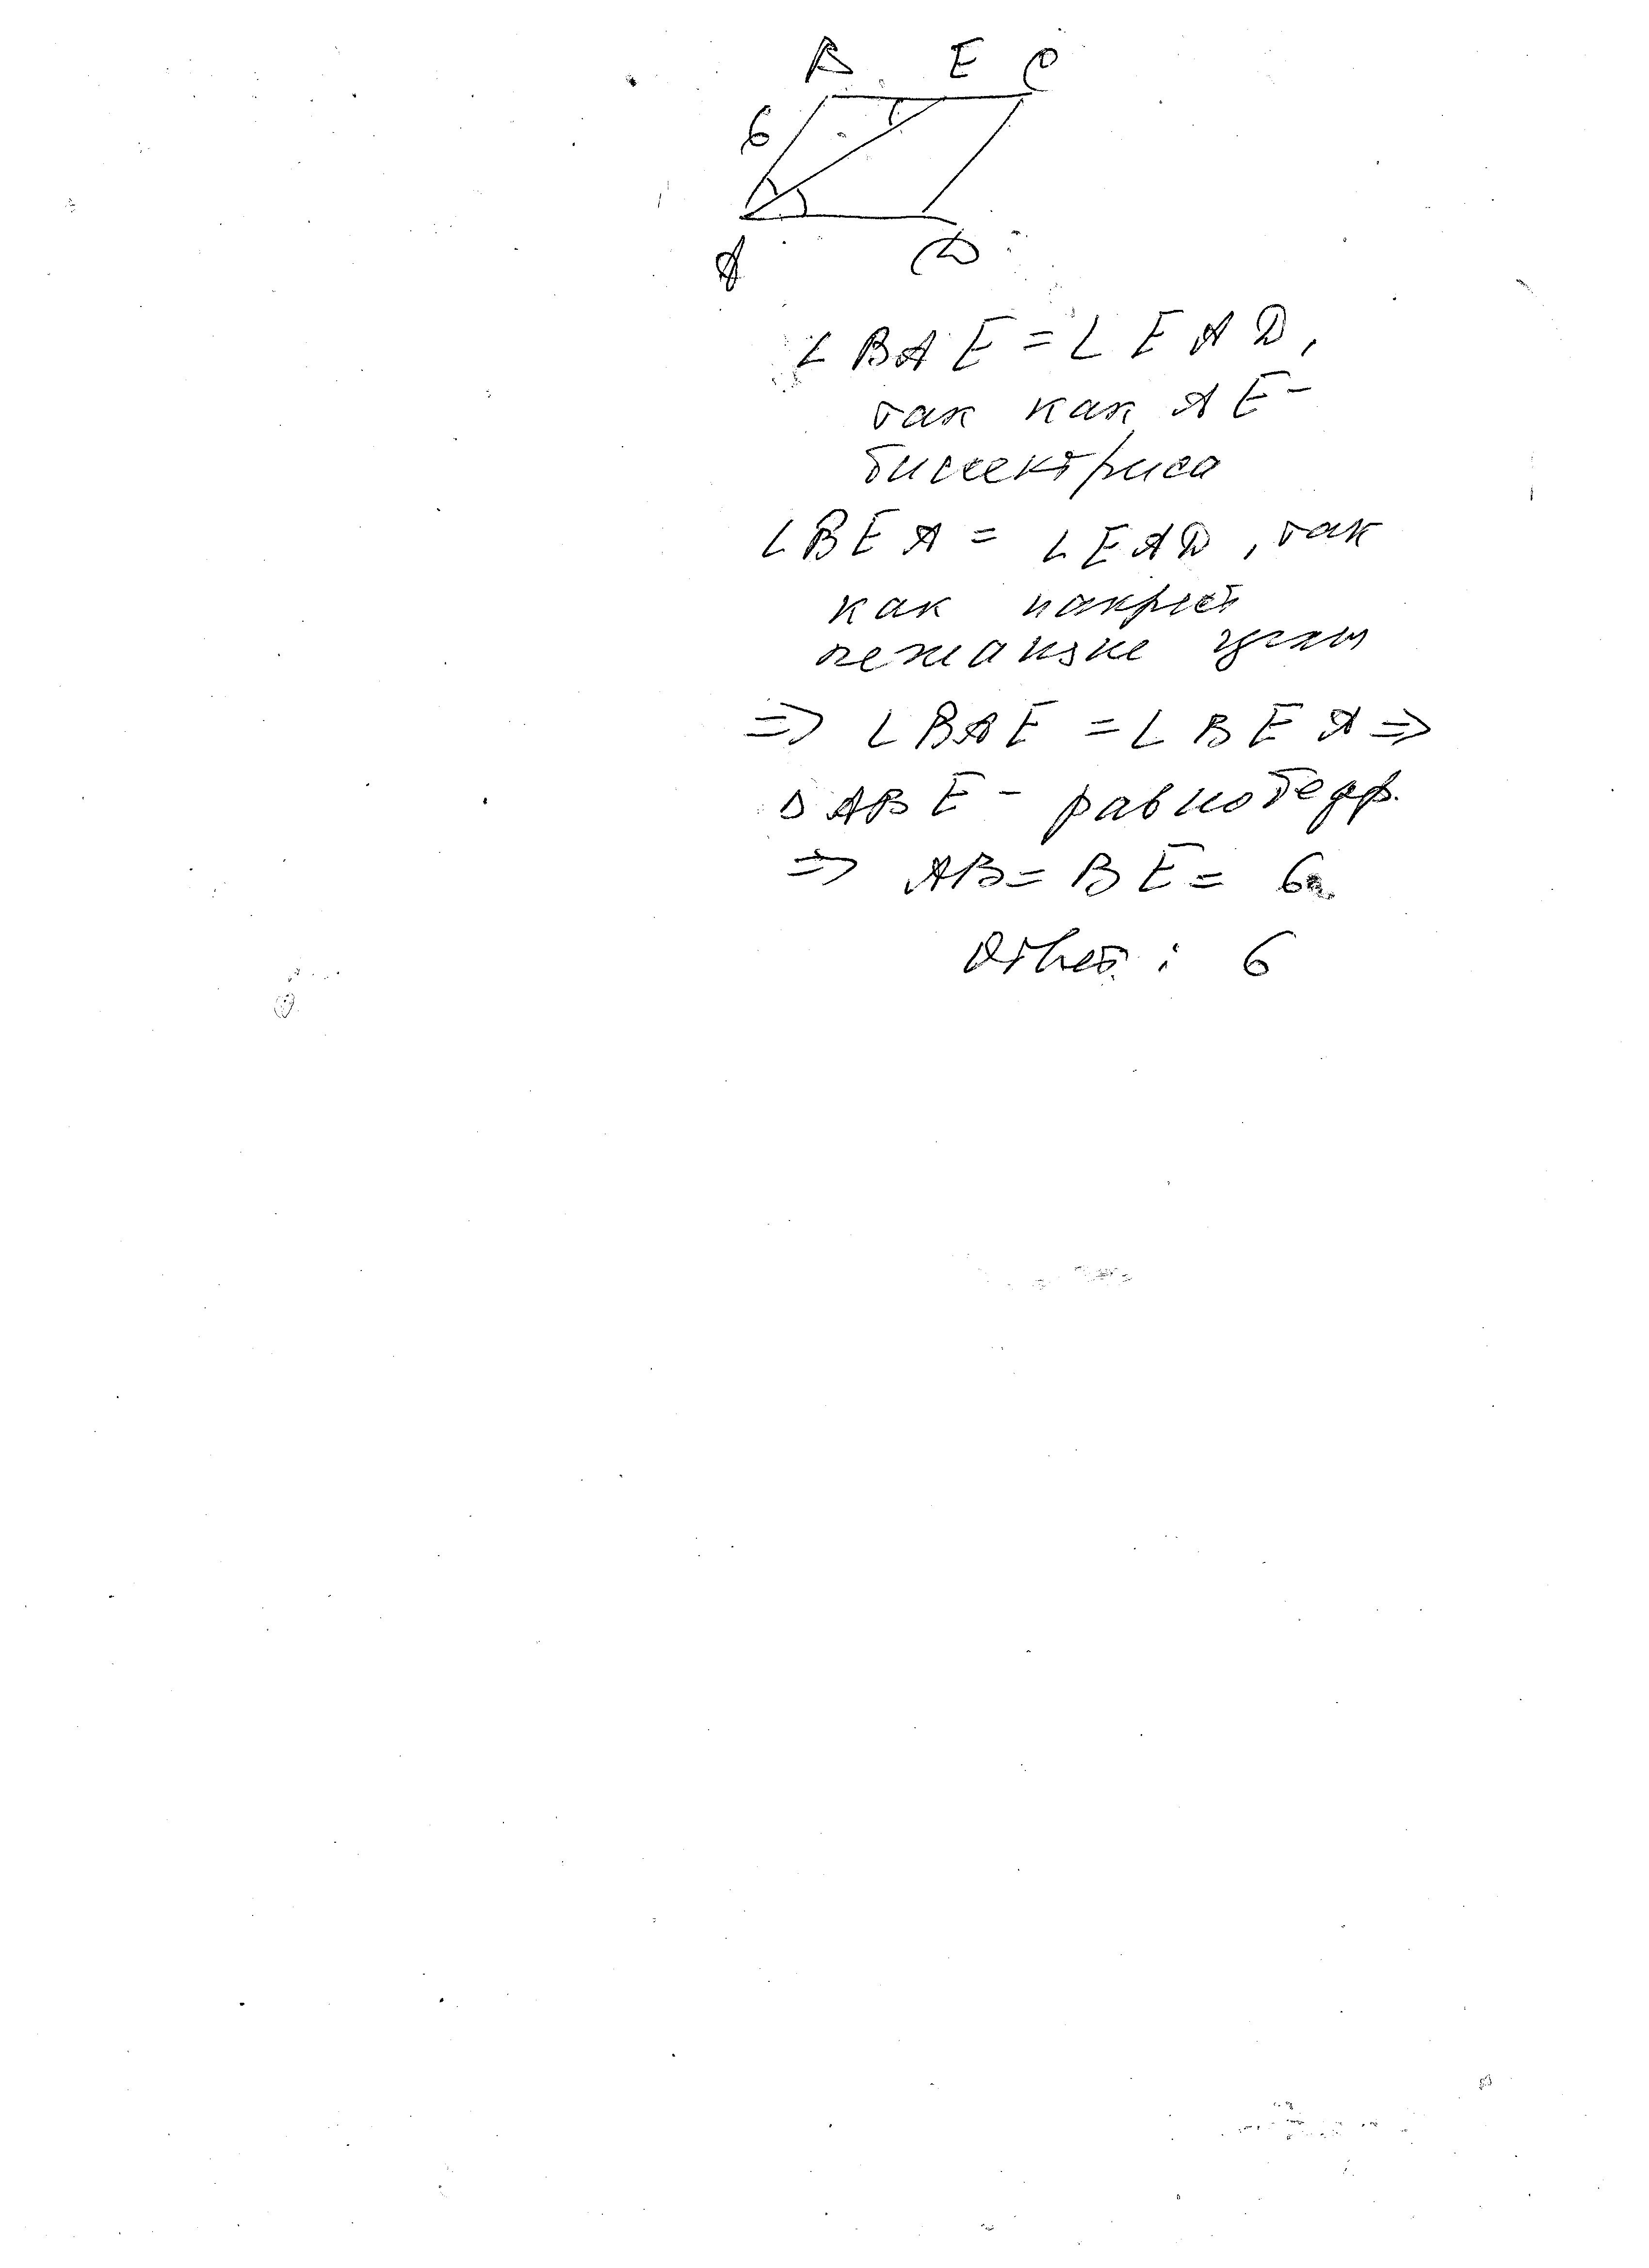 B E C
6
A D
∠BAE = ∠EAD,
так как AE -
биссектриса
∠BEA = ∠EAD, так
как накрест
лежащие углы
=> ∠BAE = ∠BEA =>
△ABE - равнобедр.
=> AB = BE = 6
Ответ: 6